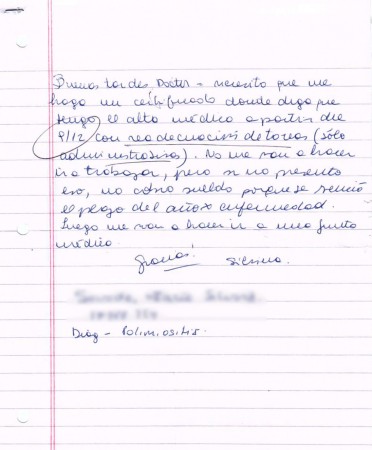 Buenas tardes Doctor - necesito que me
haga un certificado donde diga que
tengo el alto médico a partir del
9/12 con readecuación de tareas (sólo
administrativas). No me van a hacer
ir a trabajar, pero si no presento
eso, no cobro sueldo porque se venció
el plazo del año x enfermedad.
Luego me van a hacer ir a una junta
médica.
Gracias! Silvana.
Diag - Polimiositis.